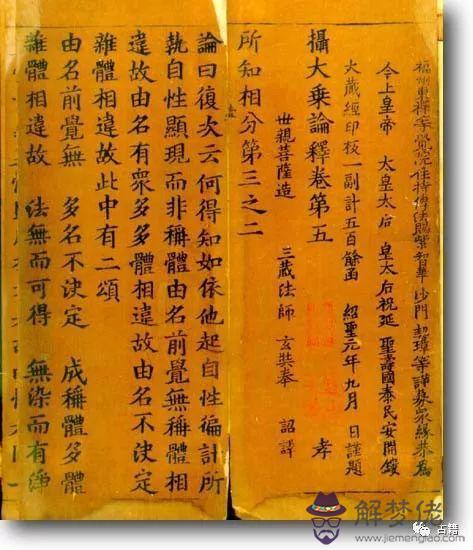 福州東禪等覺院住持傳法賜紫智華 沙門 契璋等謹募眾緣恭為
今上皇帝 太皇太后 皇太后祝延 聖壽國泰民安開鏤
大藏經印板一副計五百餘函 紹聖元年九月 日謹題
攝大乘論釋卷第五 孝
世親菩薩造 三藏法師 玄奘奉 詔譯
所知相分第三之二
論曰復次云何得知如依他起自性徧計所
執自性顯現而非稱體由名前覺無稱體相
違故由名有眾多多體相違故由名不決定
雜體相違故此中有二頌
由名前覺無 多名不決定 成稱體多體
雜體相違故 法無而可得 無染而有淨
解梦佬
www.jiemenglao.com
古籍